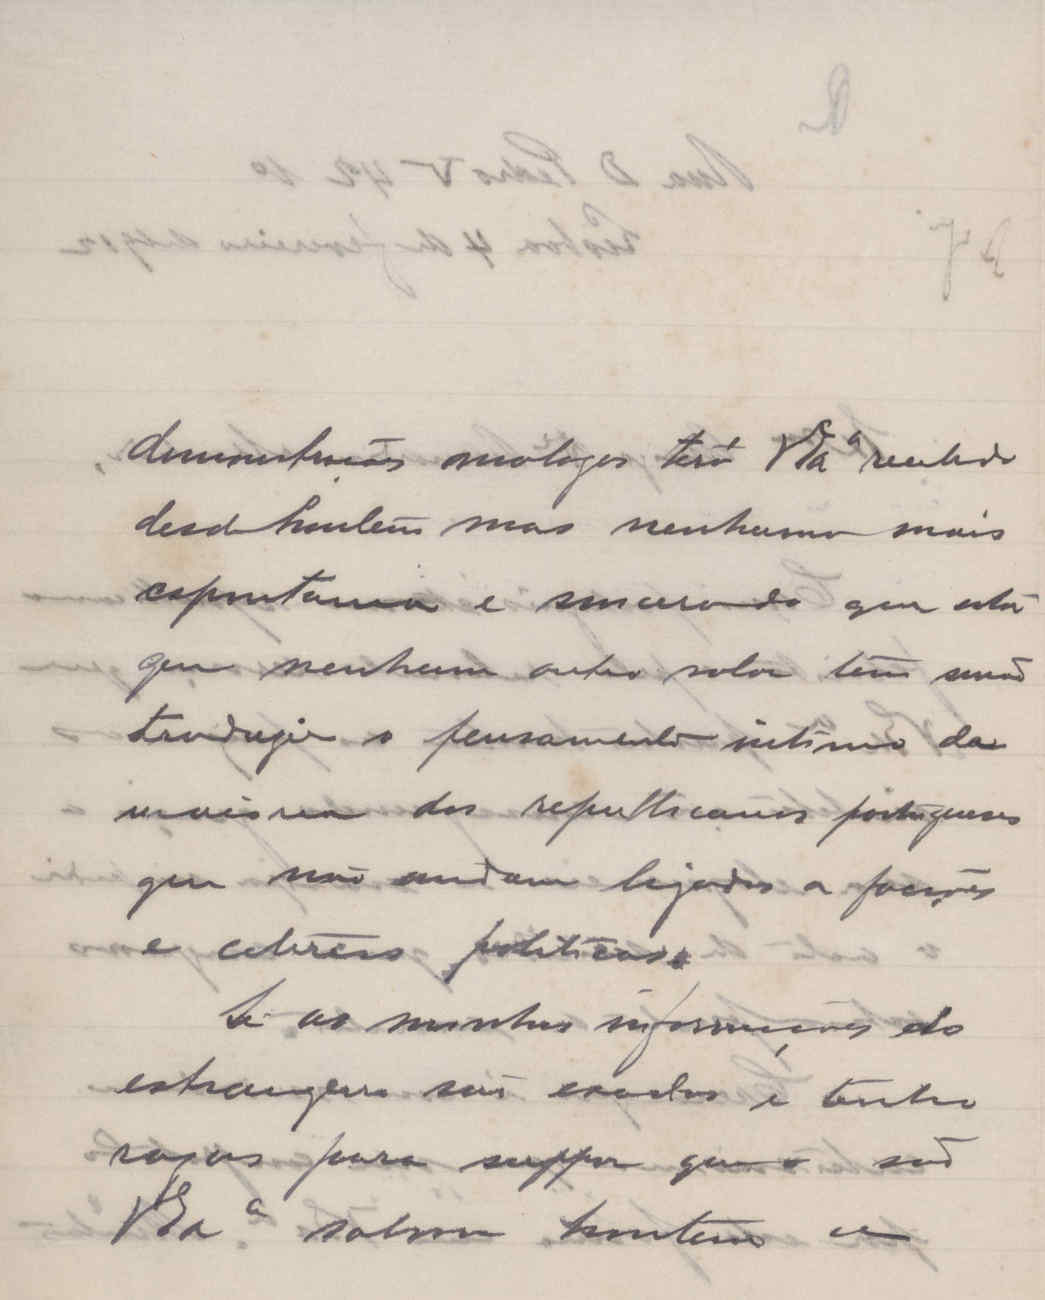 demonstrações analogas terá V Exª recebido
desde hontem mas nenhuma mais
espontanea e sincera do que esta
que nenhum outro valor tem senão
traduzir o pensamento intimo da
maioria dos republicanos portugueses
que não andam ligados a facções
e coteries politicas.
Se as minhas informações do
estrangeiro são exactas, e tenho
razões para suppor que o são
V Exª salvou hontem a